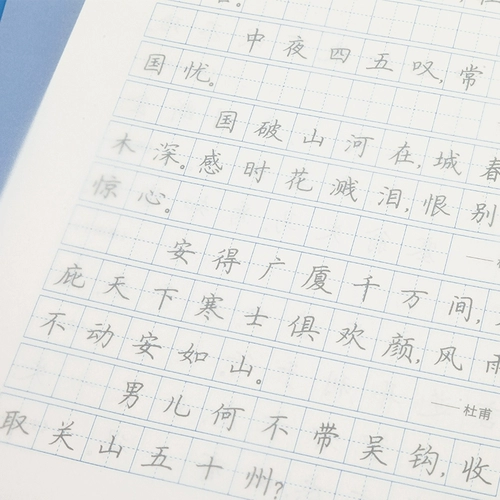 中夜四五叹,常
国忧。
国破山河在,城春
木深。感时花溅泪,恨别
惊心。
安得广厦千万间,
庇天下寒士俱欢颜,风雨
不动安如山。
——杜甫
男儿何不带吴钩,收
取关山五十州?